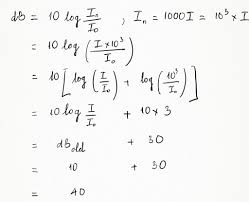 dB = 10 log I_n/I_o , I_n = 1000I = 10^3 × I
= 10 log (I × 10^3 / I_o)
= 10 [ log (I/I_o) + log (10^3/I_o) ]
= 10 log I/I_o + 10 × 3
= dB_old + 30
= 10 + 30
= 40